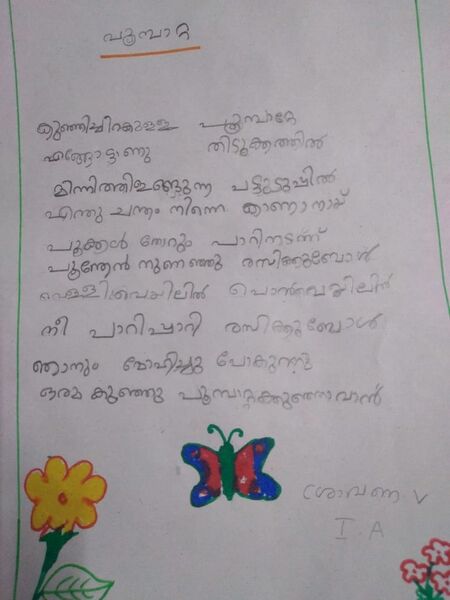 പൂമ്പാറ്റ
കുഞ്ഞിച്ചിറകുള്ള പൂമ്പാറ്റേ
എങ്ങോട്ടാണു തിടുക്കത്തിൽ
മിന്നിത്തിളങ്ങുന്ന പട്ടുടുപ്പിൽ
എന്തു ചന്തം നിന്നെ കാണാനായ്
പൂക്കൾ തോറും പാറിനടന്ന്
പൂന്തേൻ നുണഞ്ഞു രസിക്കുബോൾ
വെള്ളിവെയിലിൽ പൊൻവെയിലിൽ
നീ പാറിപ്പാറി രസിക്കുബോൾ
ഞാനും മോഹിച്ചു പോകുന്നു
ഒരു കുഞ്ഞു പൂമ്പാറ്റക്കുഞ്ഞാവാൻ
V
I.A